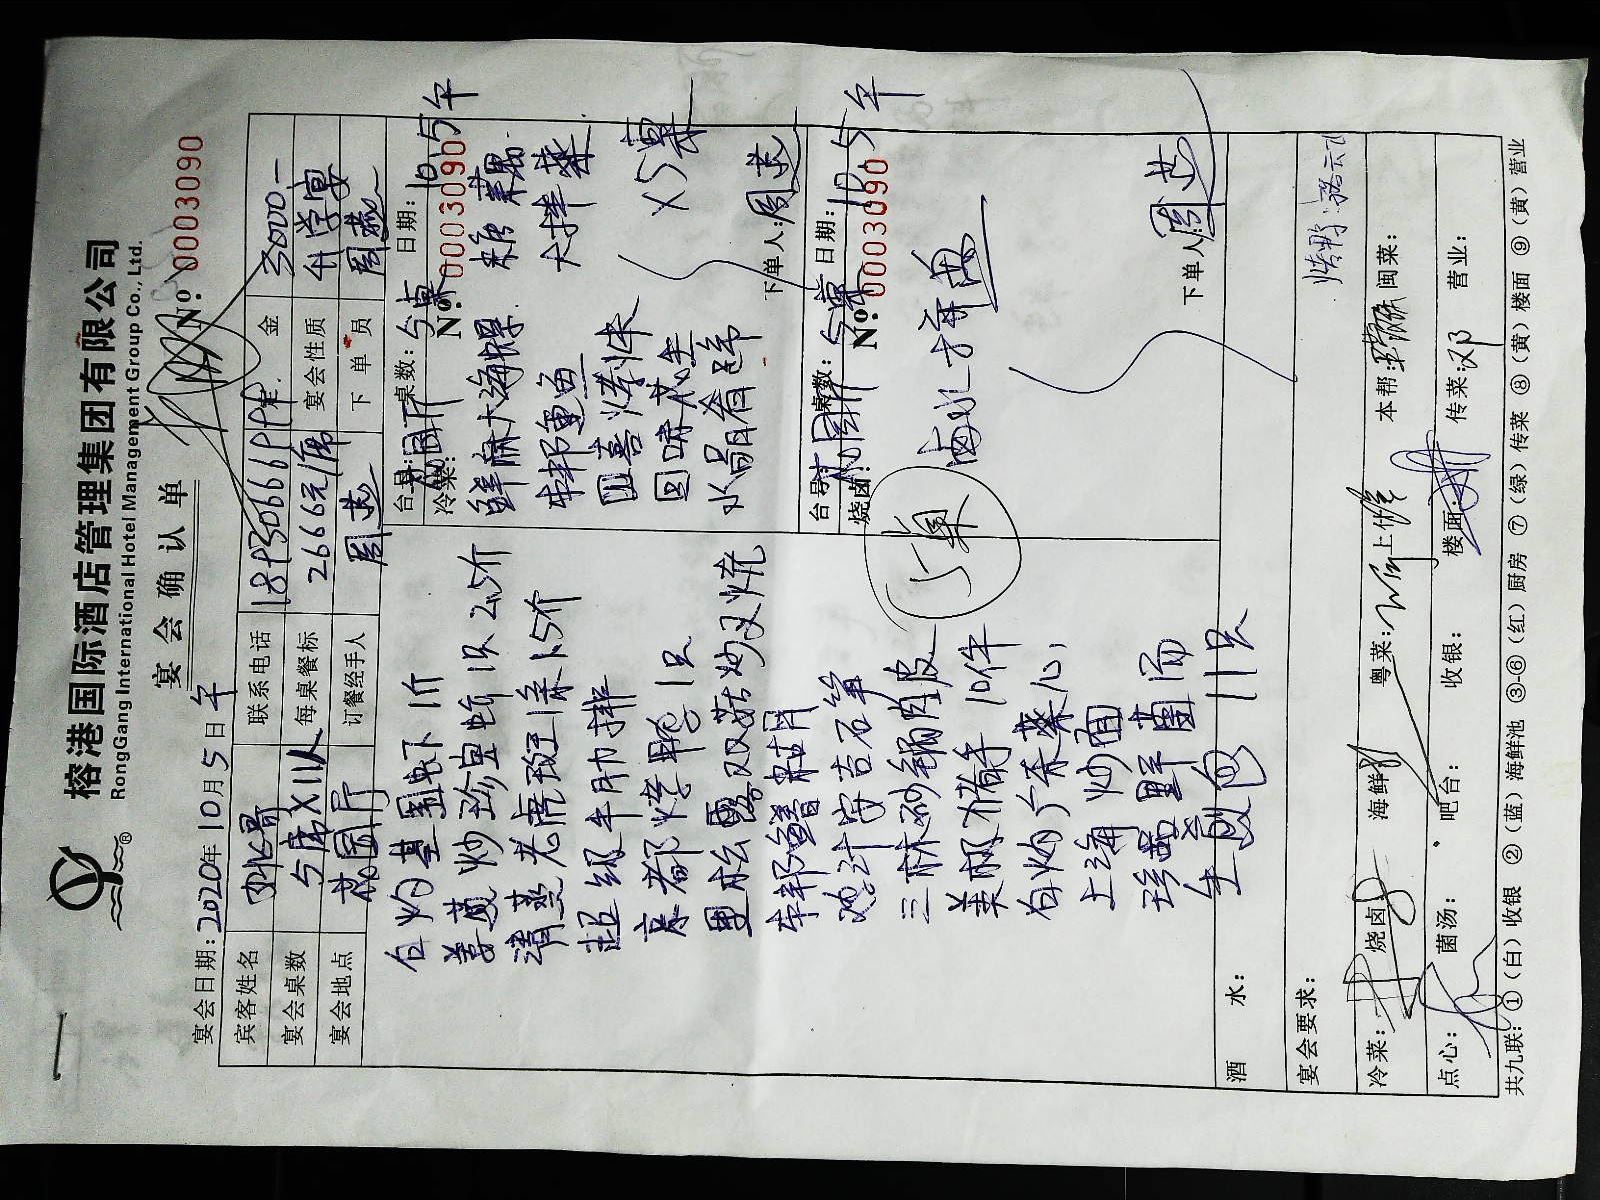 榕港国际酒店管理集团有限公司
RongGang International Hotel Management Group Co., Ltd.
宴会确认单
№: 0003090
宴会日期: 2020年10月5日 午
宾客姓名 联系电话 金 3000-
宴会桌数 5席×11人 每桌餐标 2666元/席 宴会性质 升学宴
宴会地点 花园厅 订餐经手人 周燕 下单员 周燕
白灼基围虾 1斤
姜葱炒珍宝蚧 1只 2.5斤
清蒸老虎斑 1条 1.5斤
超级牛肋排
京都烤鸭 1只
黑松露双菇炒叉烧
鲍汁安吉石笋
三林砂锅肉皮
美极猪手 10件
白灼广东菜心
上海炒面
珍菌野菌汤
生煎包 11只
5桌
台号: 花园厅 桌数: 5桌 日期: 10.5午
冷菜: №: 0003090
鲜麻大海蜇 糖
本邦熏鱼 大拌菜
四喜烤
水晶肴蹄
×5桌
下单人: 周燕
台号: 花园厅 桌数: 5桌 日期: 10.5午
烧卤: №: 0003090
卤水拼盘
下单人: 周燕
酒水:
宴会要求:
冷菜: 烧卤: 海鲜: 粤菜: 本帮: 闽菜:
点心: 菌汤: 吧台: 收银: 楼面: 传菜: 邓 营业:
共九联: ①(白)收银 ②(蓝)海鲜池 ③-⑥(红)厨房 ⑦(绿)传菜 ⑧(黄)楼面 ⑨(黄)营业